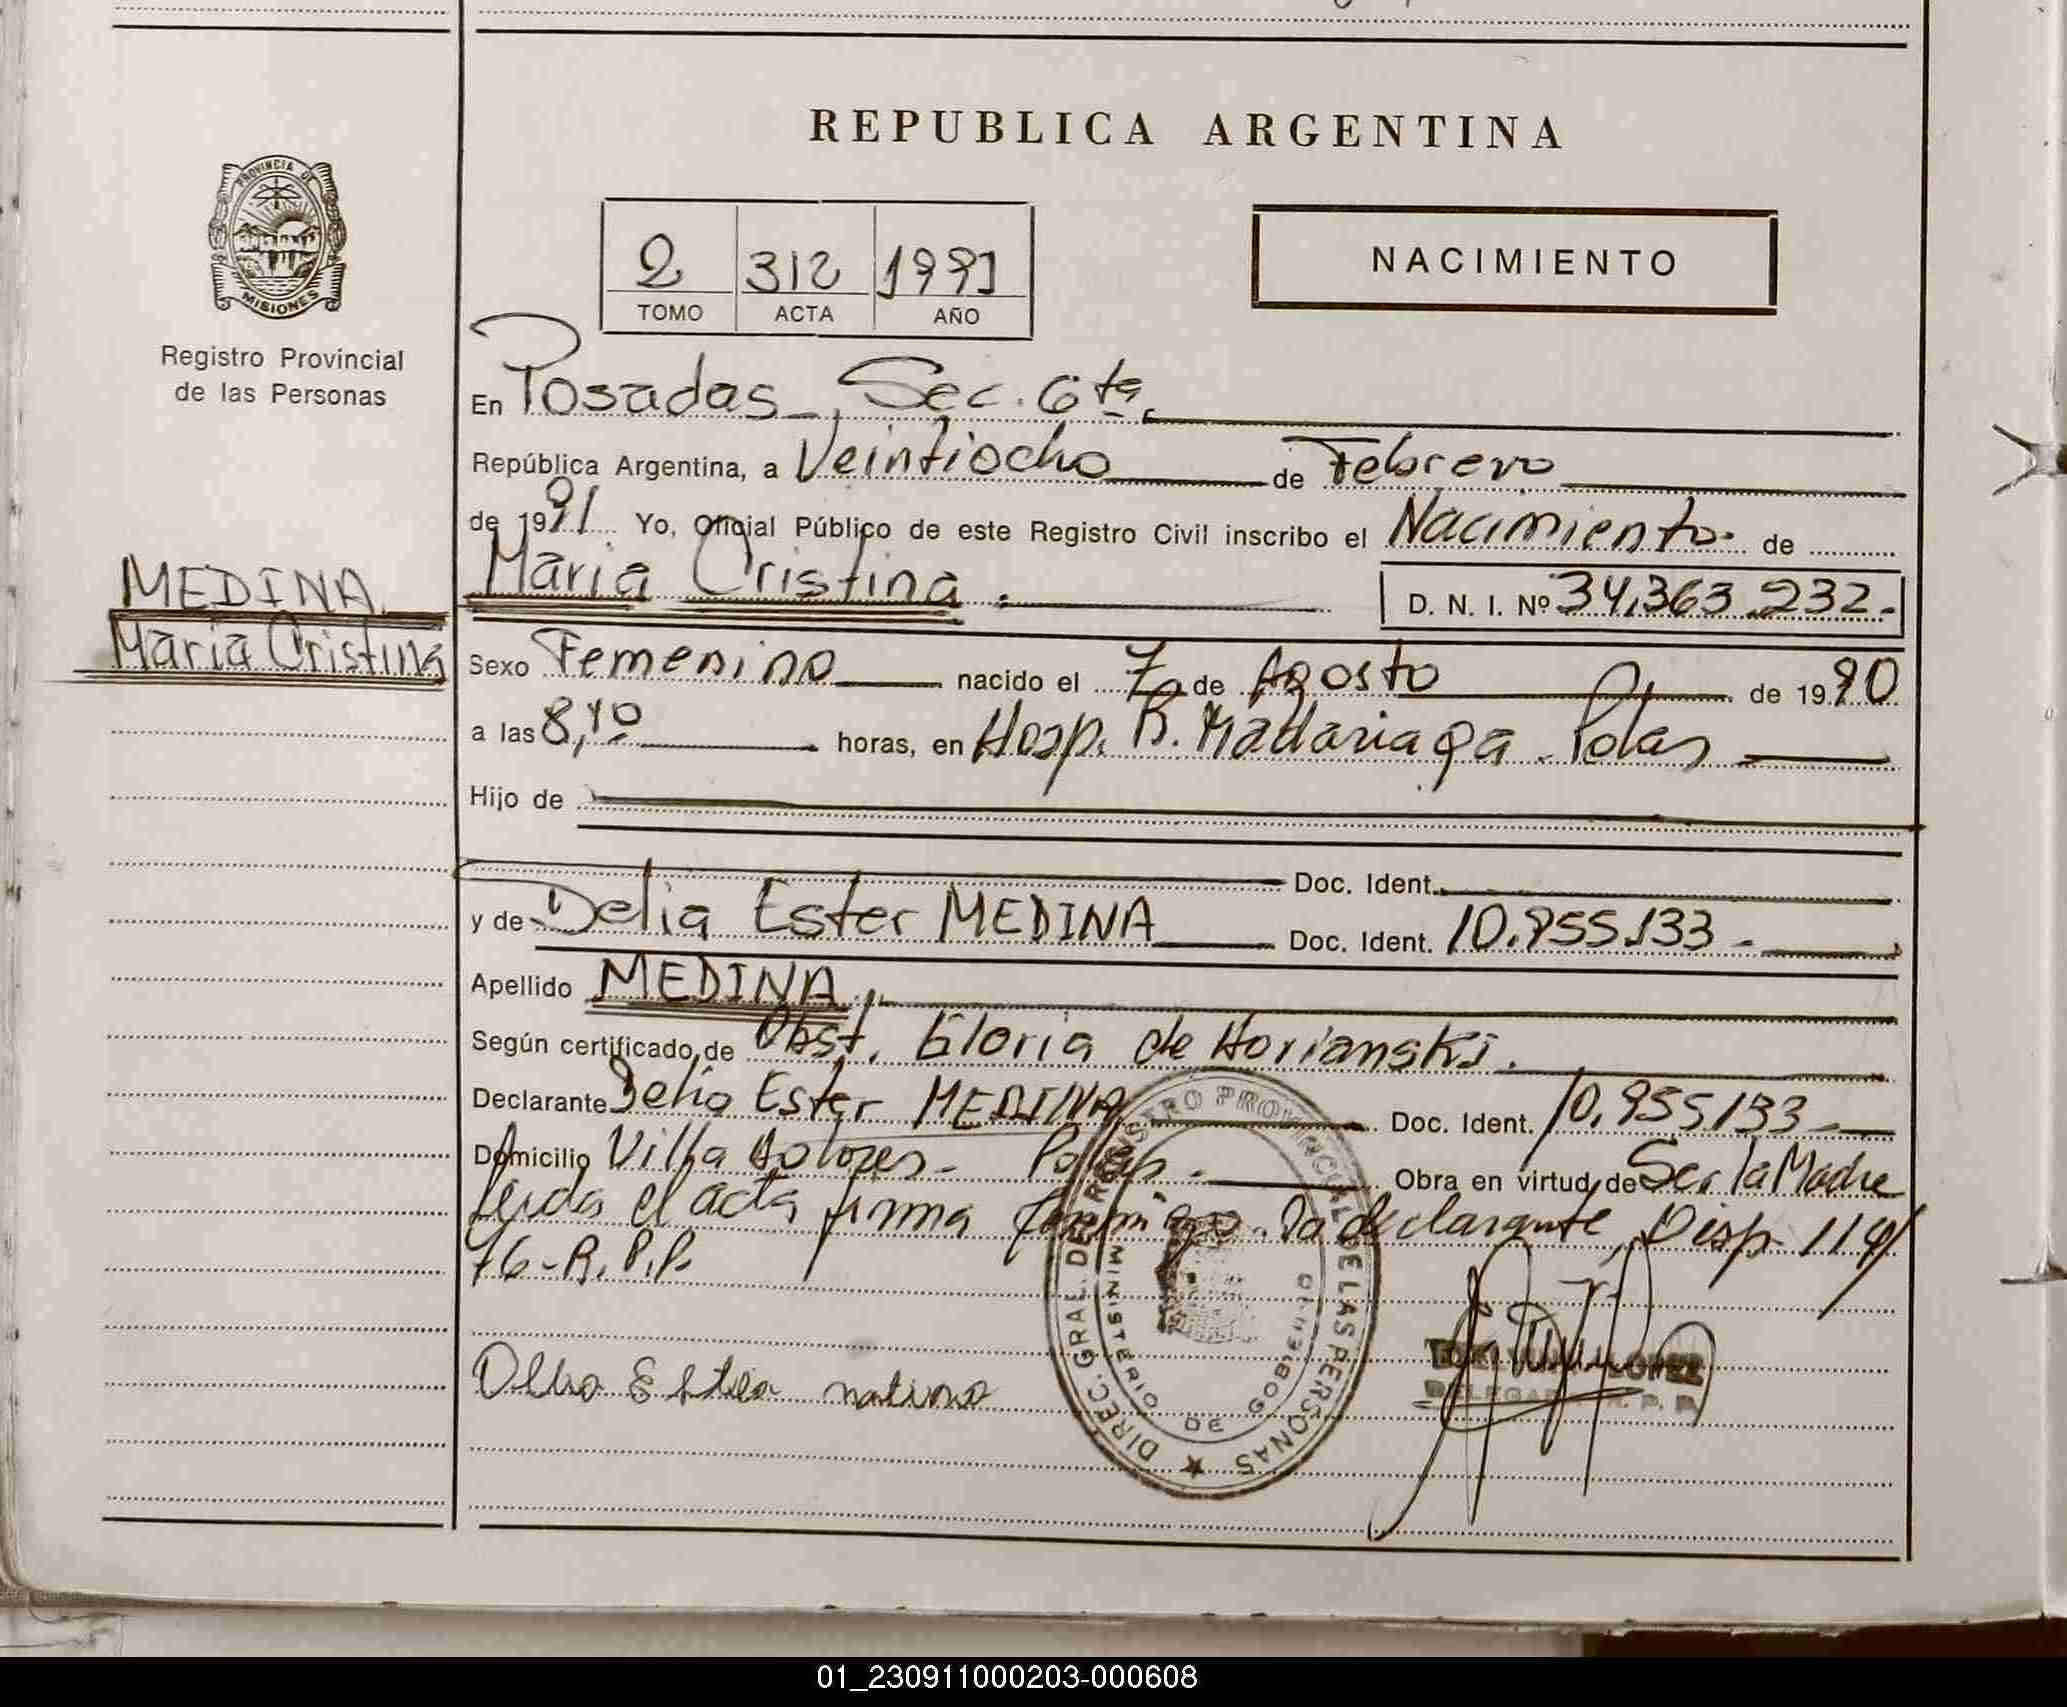 REPUBLICA ARGENTINA
PROVINCIA DE MISIONES
Registro Provincial
de las Personas
2 312 1991
TOMO ACTA AÑO
NACIMIENTO
En Posadas, Sec. 6ta.
República Argentina, a Veintiocho de Febrero
de 1991 Yo, Oficial Público de este Registro Civil inscribo el Nacimiento de
MEDINA
Maria Cristina
Maria Cristina. D. N. I. Nº 34.363.232.-
Sexo Femenino nacido el 7 de Agosto de 1990
a las 8,10 horas, en Hosp. R. Madariaga. Pdas
Hijo de
Doc. Ident.
y de Delia Ester MEDINA Doc. Ident. 10.955.133 -
Apellido MEDINA.
Según certificado de Obst. Gloria de Horianski.
Declarante Delia Ester MEDINA Doc. Ident. 10.955.133 -
Domicilio Villa Dolores - Pdas. - Obra en virtud de Ser la Madre
Leida el acta firma conmigo la declarante, Disp. 114/
76-R.P.P.
DIREC. GRAL. DEL REGISTRO PROVINCIAL DE LAS PERSONAS
MINISTERIO DE GOBIERNO
LOPEZ
01_230911000203-000608